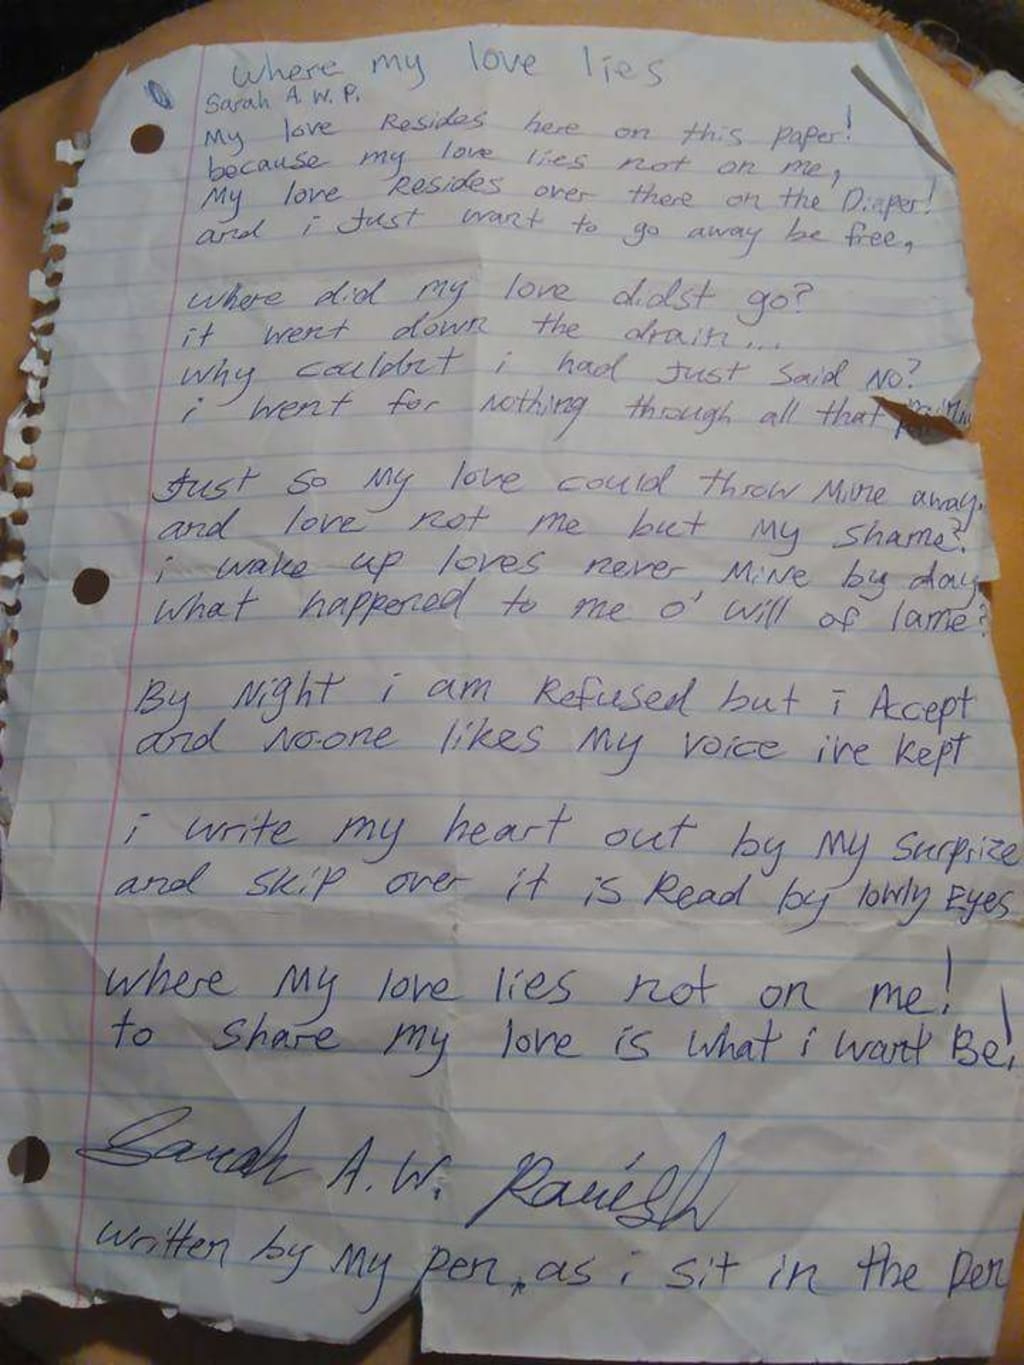 where my love lies
Sarah A. W. P.
My love Resides here on this paper!
because my love lies not on me,
My love Resides over there on the Diaper!
and i Just want to go away be free,
where did my love didst go?
it went down the drain...
why couldnt i had Just said No?
i went for Nothing through all that
Just so My love could throw Mine away.
and love not me but My shame?
i wake up loves never MiNe by day
what happened to me o' will of lame?
By Night i am Refused but i Accept
and No-one likes My voice ive kept
i write my heart out by My Surprize
and skip over it is Read by lowly Eyes
where My love lies not on me!
to share my love is what i want Be!
Sarah A.W.
written by My pen, as i sit in the Pen